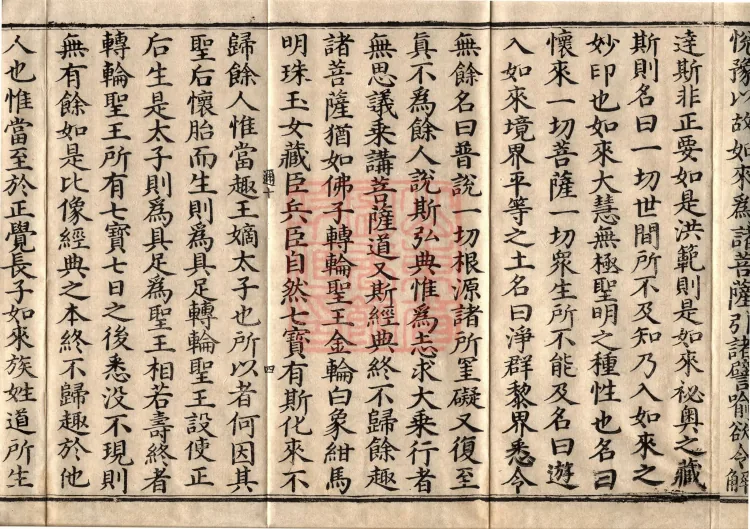 悅豫以故如來爲諸菩薩引諸譬喻欲令解
達斯非正要如是洪範則是如來祕奧之藏
斯則名曰一切世間所不及知乃入如來之
妙印也如來大慧無極聖明之種性也名曰
懷來一切菩薩一切衆生所不能及名曰遊
入如來境界平等之土名曰淨群黎界悉令
無餘名曰普說一切根源諸所罣礙又復至
眞不爲餘人說斯弘典惟爲志求大乘行者
無思議乘講菩薩道又斯經典終不歸餘趣
諸菩薩猶如佛子轉輪聖王金輪白象紺馬
明珠玉女藏臣兵臣自然七寶有斯化來不
十 四
歸餘人惟當趣王嫡太子也所以者何因其
聖后懷胎而生則爲具足轉輪聖王設使正
后生是太子則爲具足爲聖王相若壽終者
轉輪聖王所有七寶七日之後悉没不現則
無有餘如是比像經典之本終不歸趣於他
人也惟當至於正覺長子如來族姓道所生